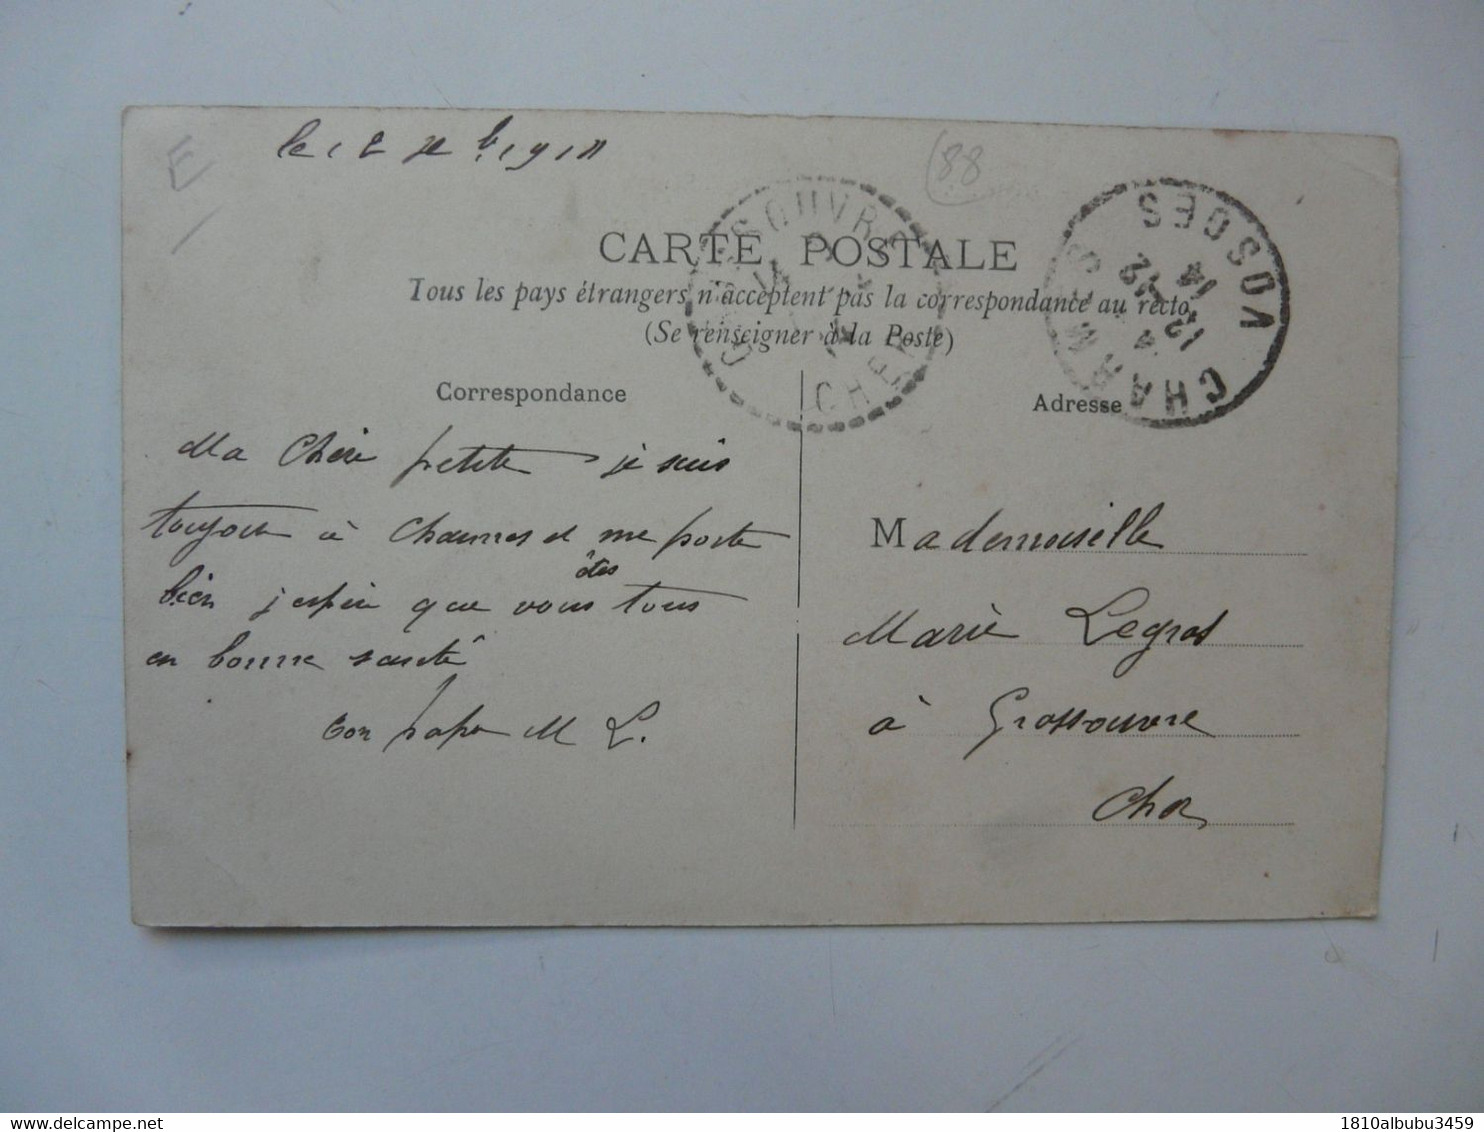 E
88
CARTE POSTALE
Tous les pays étrangers n'acceptent pas la correspondance au recto
(Se renseigner à la Poste)
CHARMES
VOSGES
12 42
4 14
SSOUVRE
14
CHER
Correspondance
Ma Chère petite je suis
toujour à Charmes et me porte
bien j'espère que vous êtes tous
en bonne santé
ton papa M L.
Adresse
Mademoiselle
Marie Legros
à Grossouvre
Cher
1810albubu3459